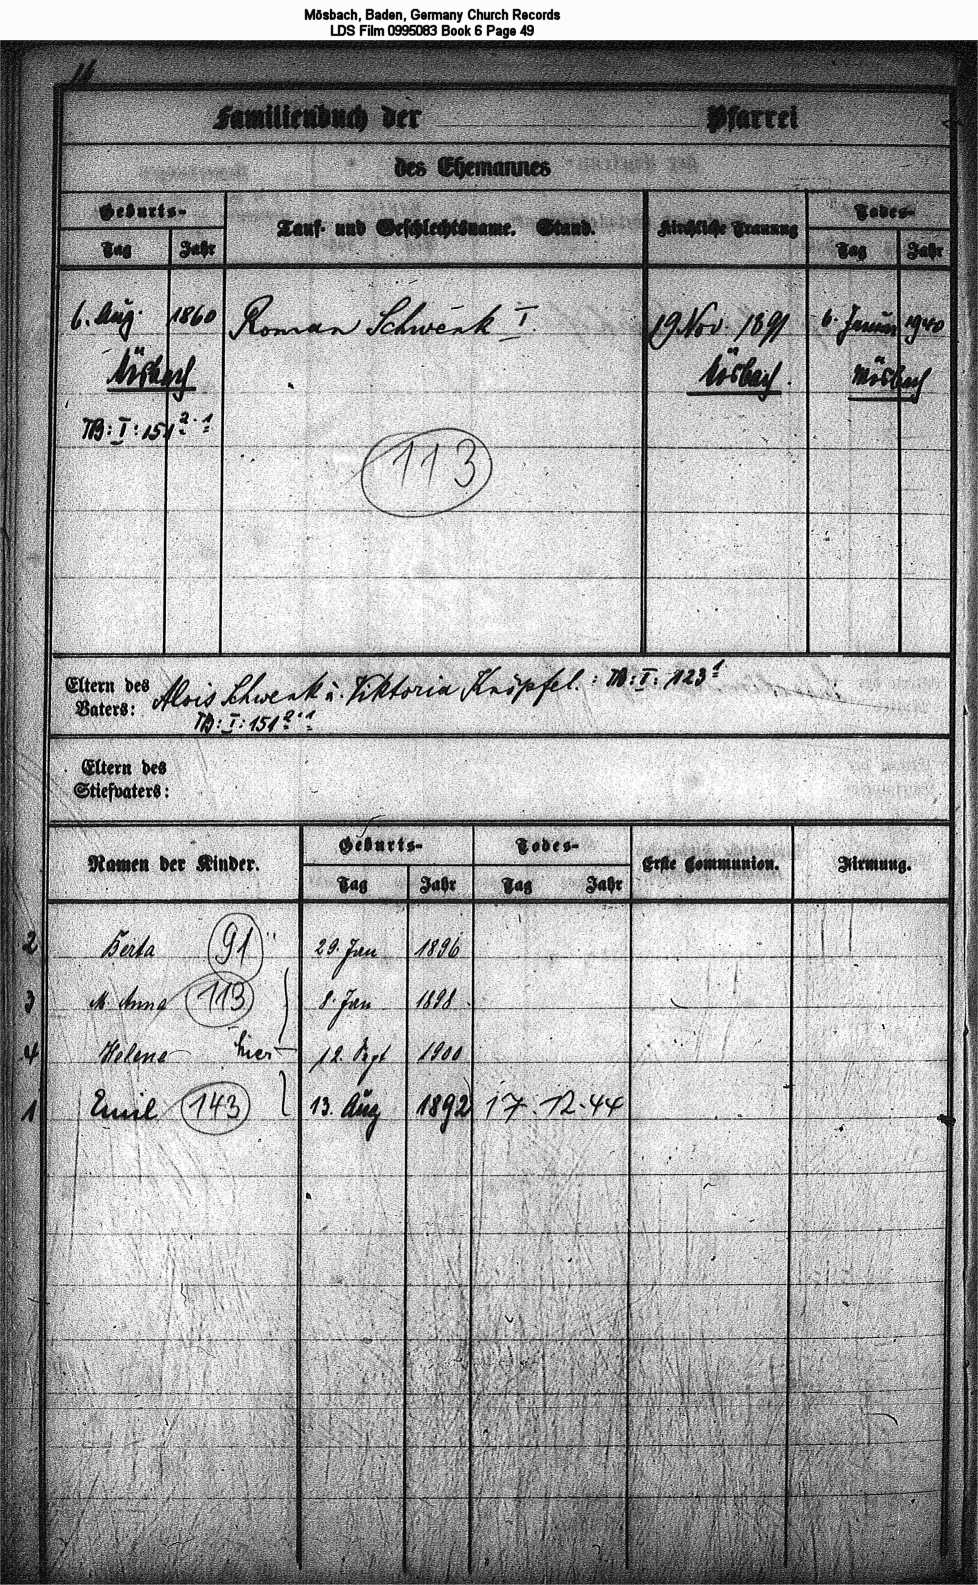 Mösbach, Baden, Germany Church Records
LDS Film 0995083 Book 6 Page 49
16
Familienbuch der Pfarrei
des Ehemannes
Geburts- Tauf- und Geschlechtsname. Stand. Kirchliche Trauung Todes-
Tag Jahr Tag Jahr
6. Aug. 1860 Roman Schwenk I. 19 Nov. 1891 6. Januar 1940
Mösbach Mösbach. Mösbach
TB: I: 151 2.1
113
Eltern des Vaters: Alois Schwenk u. Viktoria Knöpfel.: TB: I: 123 1
TB: I: 151 2.1
Eltern des
Stiefvaters:
Namen der Kinder. Geburts- Todes- Erste Communion. Firmung.
Tag Jahr Tag Jahr
2 Berta 91 29. Jan 1896
3 M. Anna 113 8. Jan 1898
4 Helena hier 12. Sept 1900
1 Emil 143 13. Aug 1892 17.12.44